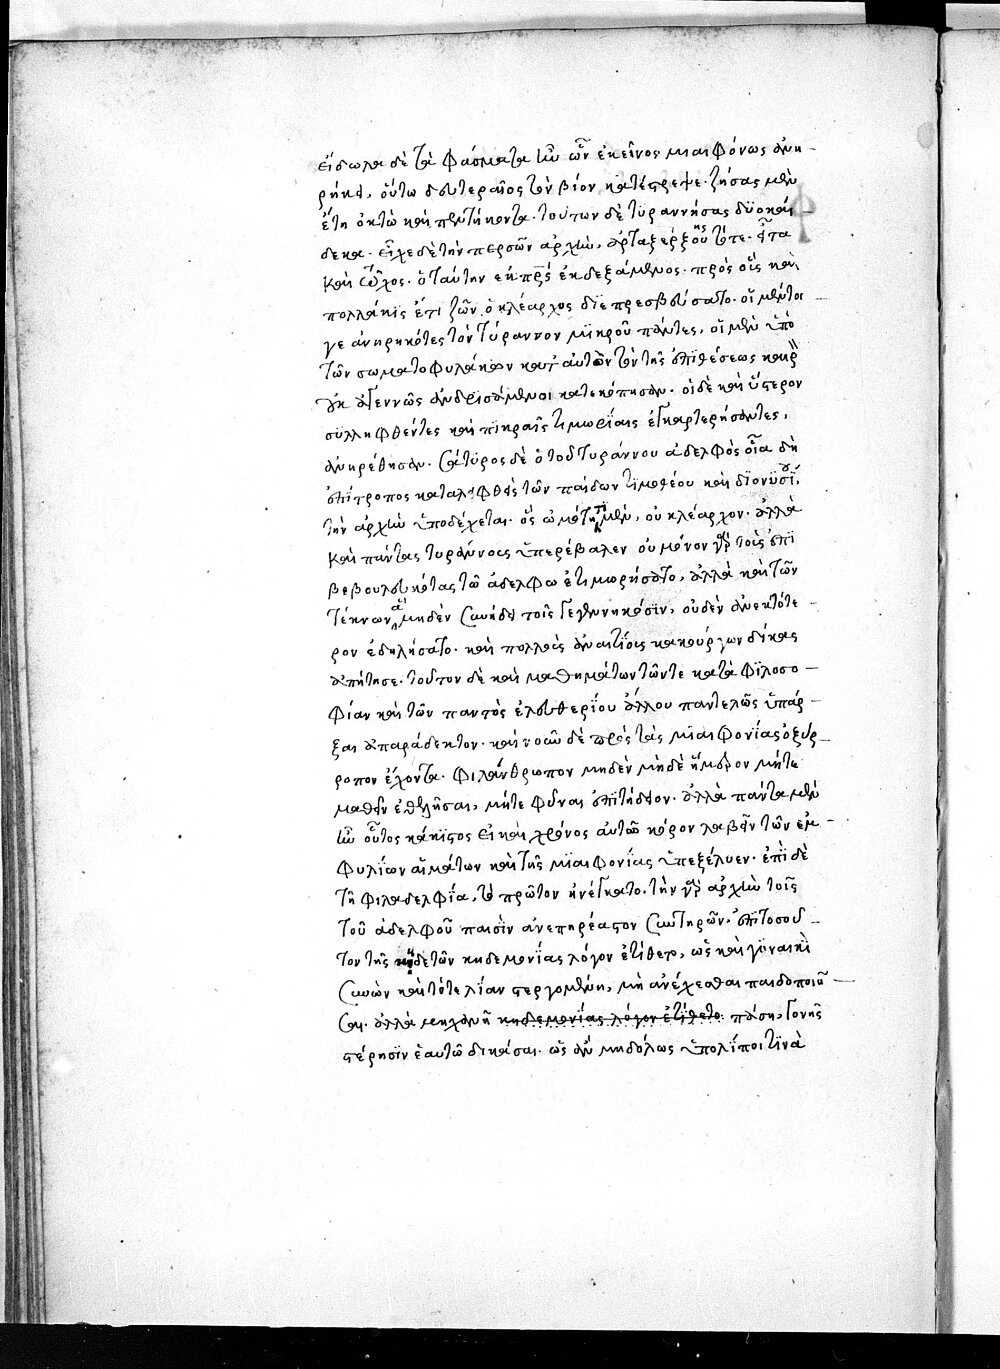 εἴδωλα δὲ τὰ φάσματα ἦν ὧν ἐκεῖνος μιαιφόνως ἀνη-
ρήκει, οὕτω δευτεραῖος τὸν βίον κατέστρεψε. ζήσας μὲν
ἔτη ὀκτὼ καὶ πεντήκοντα. τούτων δὲ τυραννήσας δυοκαί-
δεκα. εἶχε δὲ τὴν περσῶν ἀρχὴν, ἀρταξέρξης τότε. εἶτα
καὶ ὦχος. ὁ ταύτην ἐκ πρς ἐκδεξάμενος. πρὸς οἷς καὶ
πολλάκις ἔτι ζῶν ὁ κλέαρχος διεπρεσβεύσατο. οἱ μέντοι
γε ἀνηρηκότες τὸν τύραννον μικροῦ πάντες, οἱ μὲν ὑπὸ
τῶν σωματοφυλάκων κατ αὐτὸν τὸν τῆς ἐπιθέσεως καιρ
οὐκ ἀγεννῶς ἀνδρισάμενοι κατεκόπησαν. οἱ δὲ καὶ ὕστερον
συλληφθέντες καὶ πικραῖς τιμωρίαις ἐγκαρτερήσαντες,
ἀνῃρέθησαν. Σάτυρος δὲ ὁ τοῦ τυράννου ἀδελφὸς οἷα δὴ
ἐπίτροπος καταλειφθεὶς τῶν παίδων τιμοθέου καὶ διονυσί,
τὴν ἀρχὴν ὑποδέχεται. ὃς ὠμότητι μὲν, οὐ κλέαρχον. ἀλλὰ
καὶ πάντας τυράννους ὑπερέβαλεν οὐ μόνον γὰρ τοὺς ἐπι
βεβουλευκότας τῶ ἀδελφω ἐτιμωρήσατο, ἀλλὰ καὶ τῶν
τέκνων ἃ μηδὲν συνῄδει τοῖς γεγενημένοιν, οὐδὲν ἀνεκτότε-
ρον ἐδηλήσατο. καὶ πολλοὺς ἀναιτίους κακούργων δίκας
ἀπῄτησε. τοῦτον δὲ καὶ μαθημάτων τῶν τε κατὰ φιλοσο-
φίαν καὶ τῶν παντὸς ἐλευθερίου ἄλλου παντελῶς ὑπάρ-
ξαι ἀπαράδεκτον. καὶ νοῦν δὲ πρὸς τὰς μιαιφονίας ὀξύρ-
ροπον ἔχοντα. φιλάνθρωπον μηδὲν μηδὲ ἥμερον μήτε
μαθεῖν ἐθελῆσαι, μήτε φῦναι ἐπιτήδειον. ἀλλὰ πάντα μὲν
ἦν οὗτος κάκιστος εἰ καὶ χρόνος αὐτῶ κόρον λαβεῖν τῶν ἐμ-
φυλίων αἱμάτων καὶ τῆς μιαιφονίας ὑπεξέλυεν. ἐπὶ δὲ
τῆ φιλαδελφία, τὸ πρῶτον ἠνέγκατο. τὴν γὰρ ἀρχὴν τοῖς
τοῦ ἀδελφοῦ παισὶν ἀνεπηρέαστον συντηρῶν, ἐπὶ τοσοῦ-
τον τῆς δε τῶν κηδεμονίας λόγον ἐτίθετο, ὡς καὶ γυναικὶ
συνὼν καὶ τότε λίαν στεργομένη, μὴ ἀνέχεσθαι παιδοποιῆ-
σαι. ἀλλὰ μηχανῆ κηδεμονίας λόγον ἐτίθετο πάσῃ, γονῆς
στέρησιν ἑαυτῶ δικάσαι. ὡς ἂν μηδόλως ὑπολίποι τινὰ